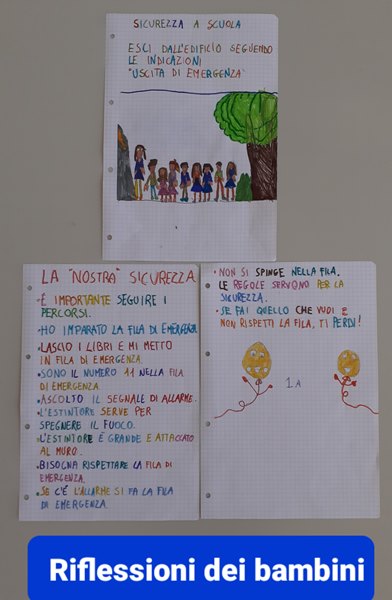 SICUREZZA A SCUOLA
ESCI DALL'EDIFICIO SEGUENDO
LE INDICAZIONI
"USCITA DI EMERGENZA"
LA "NOSTRA" SICUREZZA
• È IMPORTANTE SEGUIRE I
PERCORSI.
• HO IMPARATO LA FILA DI EMERGENZA
• LASCIO I LIBRI E MI METTO
IN FILA DI EMERGENZA.
• SONO IL NUMERO 11 NELLA FILA
DI EMERGENZA.
• ASCOLTO IL SEGNALE DI ALLARME.
• L'ESTINTORE SERVE PER
SPEGNERE IL FUOCO.
• L'ESTINTORE È GRANDE E ATTACCATO
AL MURO.
• BISOGNA RISPETTARE LA FILA DI
EMERGENZA.
• SE C'È L'ALLARME SI FA LA FILA
DI EMERGENZA.
• NON SI SPINGE NELLA FILA.
LE REGOLE SERVONO PER LA
SICUREZZA.
• SE FAI QUELLO CHE VUOI E
NON RISPETTI LA FILA, TI PERDI!
1. A
Riflessioni dei bambini